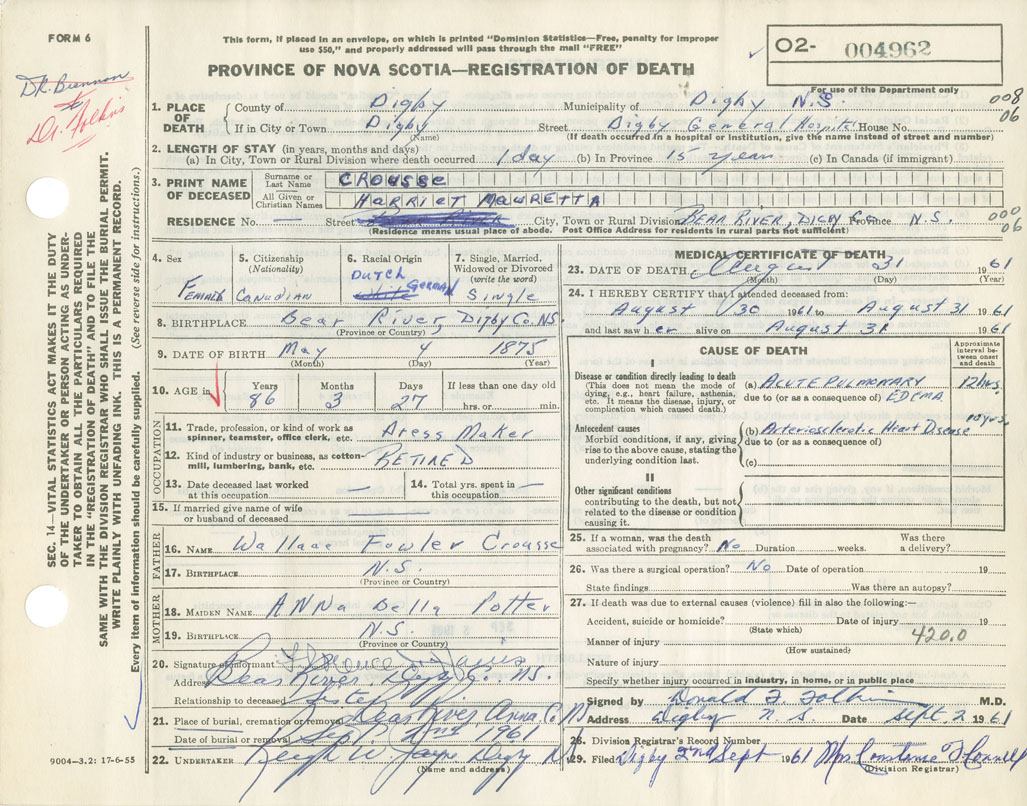 FORM 6
This form, if placed in an envelope, on which is printed "Dominion Statistics—Free, penalty for improper
use $50," and properly addressed will pass through the mail "FREE"
O2- 004962
PROVINCE OF NOVA SCOTIA—REGISTRATION OF DEATH
For use of the Department only
Dr. Brennan
to
Dr. Folkins
008
06
1. PLACE OF DEATH County of Digby Municipality of Digby N.S.
If in City or Town Digby Street Digby General Hospital House No.
(Name) (If death occurred in a hospital or Institution, give the name instead of street and number)
2. LENGTH OF STAY (in years, months and days)
(a) In City, Town or Rural Division where death occurred 1 day (b) In Province 15 years (c) In Canada (if immigrant)
3. PRINT NAME OF DECEASED Surname or Last Name CROUSSE
All Given or Christian Names HARRIET MAURETTA
RESIDENCE No. — Street City, Town or Rural Division BEAR RIVER, DIGBY Co. Province N.S.
000
06
(Residence means usual place of abode. Post Office Address for residents in rural parts not sufficient)
4. Sex
Female
5. Citizenship
(Nationality)
Canadian
6. Racial Origin
DUTCH
White GERMAN
7. Single, Married,
Widowed or Divorced
(write the word)
Single
8. BIRTHPLACE Bear River, Digby Co. N.S.
(Province or Country)
9. DATE OF BIRTH May 4 1875
(Month) (Day) (Year)
10. AGE in Years Months Days If less than one day old
86 3 27 hrs. or min.
OCCUPATION
11. Trade, profession, or kind of work as
spinner, teamster, office clerk, etc. Dress Maker
12. Kind of industry or business, as cotton-
mill, lumbering, bank, etc. RETIRED
13. Date deceased last worked
at this occupation —
14. Total yrs. spent in
this occupation —
15. If married give name of wife
or husband of deceased
FATHER
16. NAME Wallace Fowler Crousse
17. BIRTHPLACE N.S.
(Province or Country)
MOTHER
18. MAIDEN NAME ANNa Bella Potter
19. BIRTHPLACE N.S.
(Province or Country)
20. Signature of informant Florence
Address Bear River, Digby Co. N.S.
Relationship to deceased Sister
21. Place of burial, cremation or removal Bear River Anna. Co N
Date of burial or removal Sept 2nd 1961
22. UNDERTAKER Digby N
(Name and address)
9004—3.2: 17-6-55
MEDICAL CERTIFICATE OF DEATH
23. DATE OF DEATH August 31 1961
(Month) (Day) (Year)
24. I HEREBY CERTIFY that I attended deceased from:
August 30 1961 to August 31 1961
and last saw her alive on August 31 1961
CAUSE OF DEATH
Approximate
interval be-
tween onset
and death
I
Disease or condition directly leading to death
(This does not mean the mode of
dying, e.g., heart failure, asthenia,
etc. It means the disease, injury, or
complication which caused death.)
(a) ACUTE PULMONARY 12 hrs.
due to (or as a consequence of) EDEMA
Antecedent causes
Morbid conditions, if any, giving
rise to the above cause, stating the
underlying condition last.
10 yrs.
(b) Arteriosclerotic Heart Disease
due to (or as a consequence of)
(c)
II
Other significant conditions
contributing to the death, but not
related to the disease or condition
causing it.
25. If a woman, was the death
associated with pregnancy? No Duration weeks. Was there
a delivery?
26. Was there a surgical operation? No Date of operation 19
State findings Was there an autopsy?
27. If death was due to external causes (violence) fill in also the following:—
Accident, suicide or homicide? Date of injury 19
(State which)
420.0
Manner of injury
(How sustained)
Nature of injury
Specify whether injury occurred in industry, in home, or in public place
Signed by Donald F. Folkins M.D.
Address Digby N.S. Date Sept. 2 1961
28. Division Registrar's Record Number
29. Filed Digby 2nd Sept 1961 Mrs Constance O'Connell
(Division Registrar)
SEC. 14—VITAL STATISTICS ACT MAKES IT THE DUTY
OF THE UNDERTAKER OR PERSON ACTING AS UNDER-
TAKER TO OBTAIN ALL THE PARTICULARS REQUIRED
IN THE "REGISTRATION OF DEATH" AND TO FILE THE
SAME WITH THE DIVISION REGISTRAR WHO SHALL ISSUE THE BURIAL PERMIT.
WRITE PLAINLY WITH UNFADING INK. THIS IS A PERMANENT RECORD.
Every item of information should be carefully supplied. (See reverse side for instructions.)